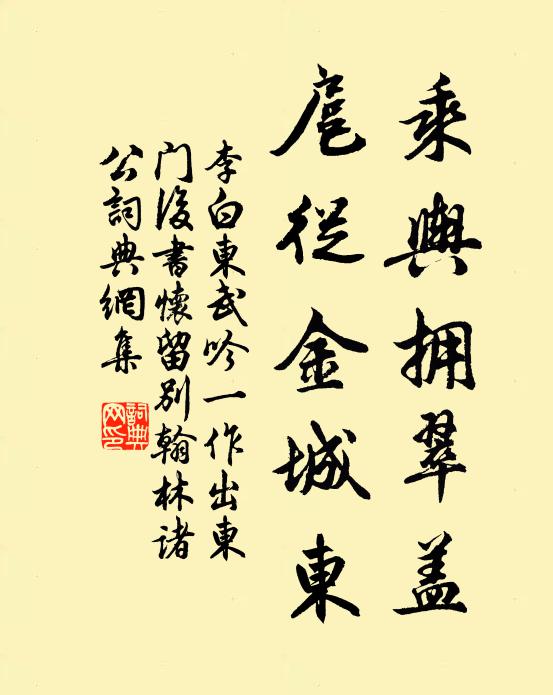 乘輿拥翠盖
扈從金城東
李白東武吟一作出東
门後書懷留別翰林诸
公詞典網集
詞典
网印